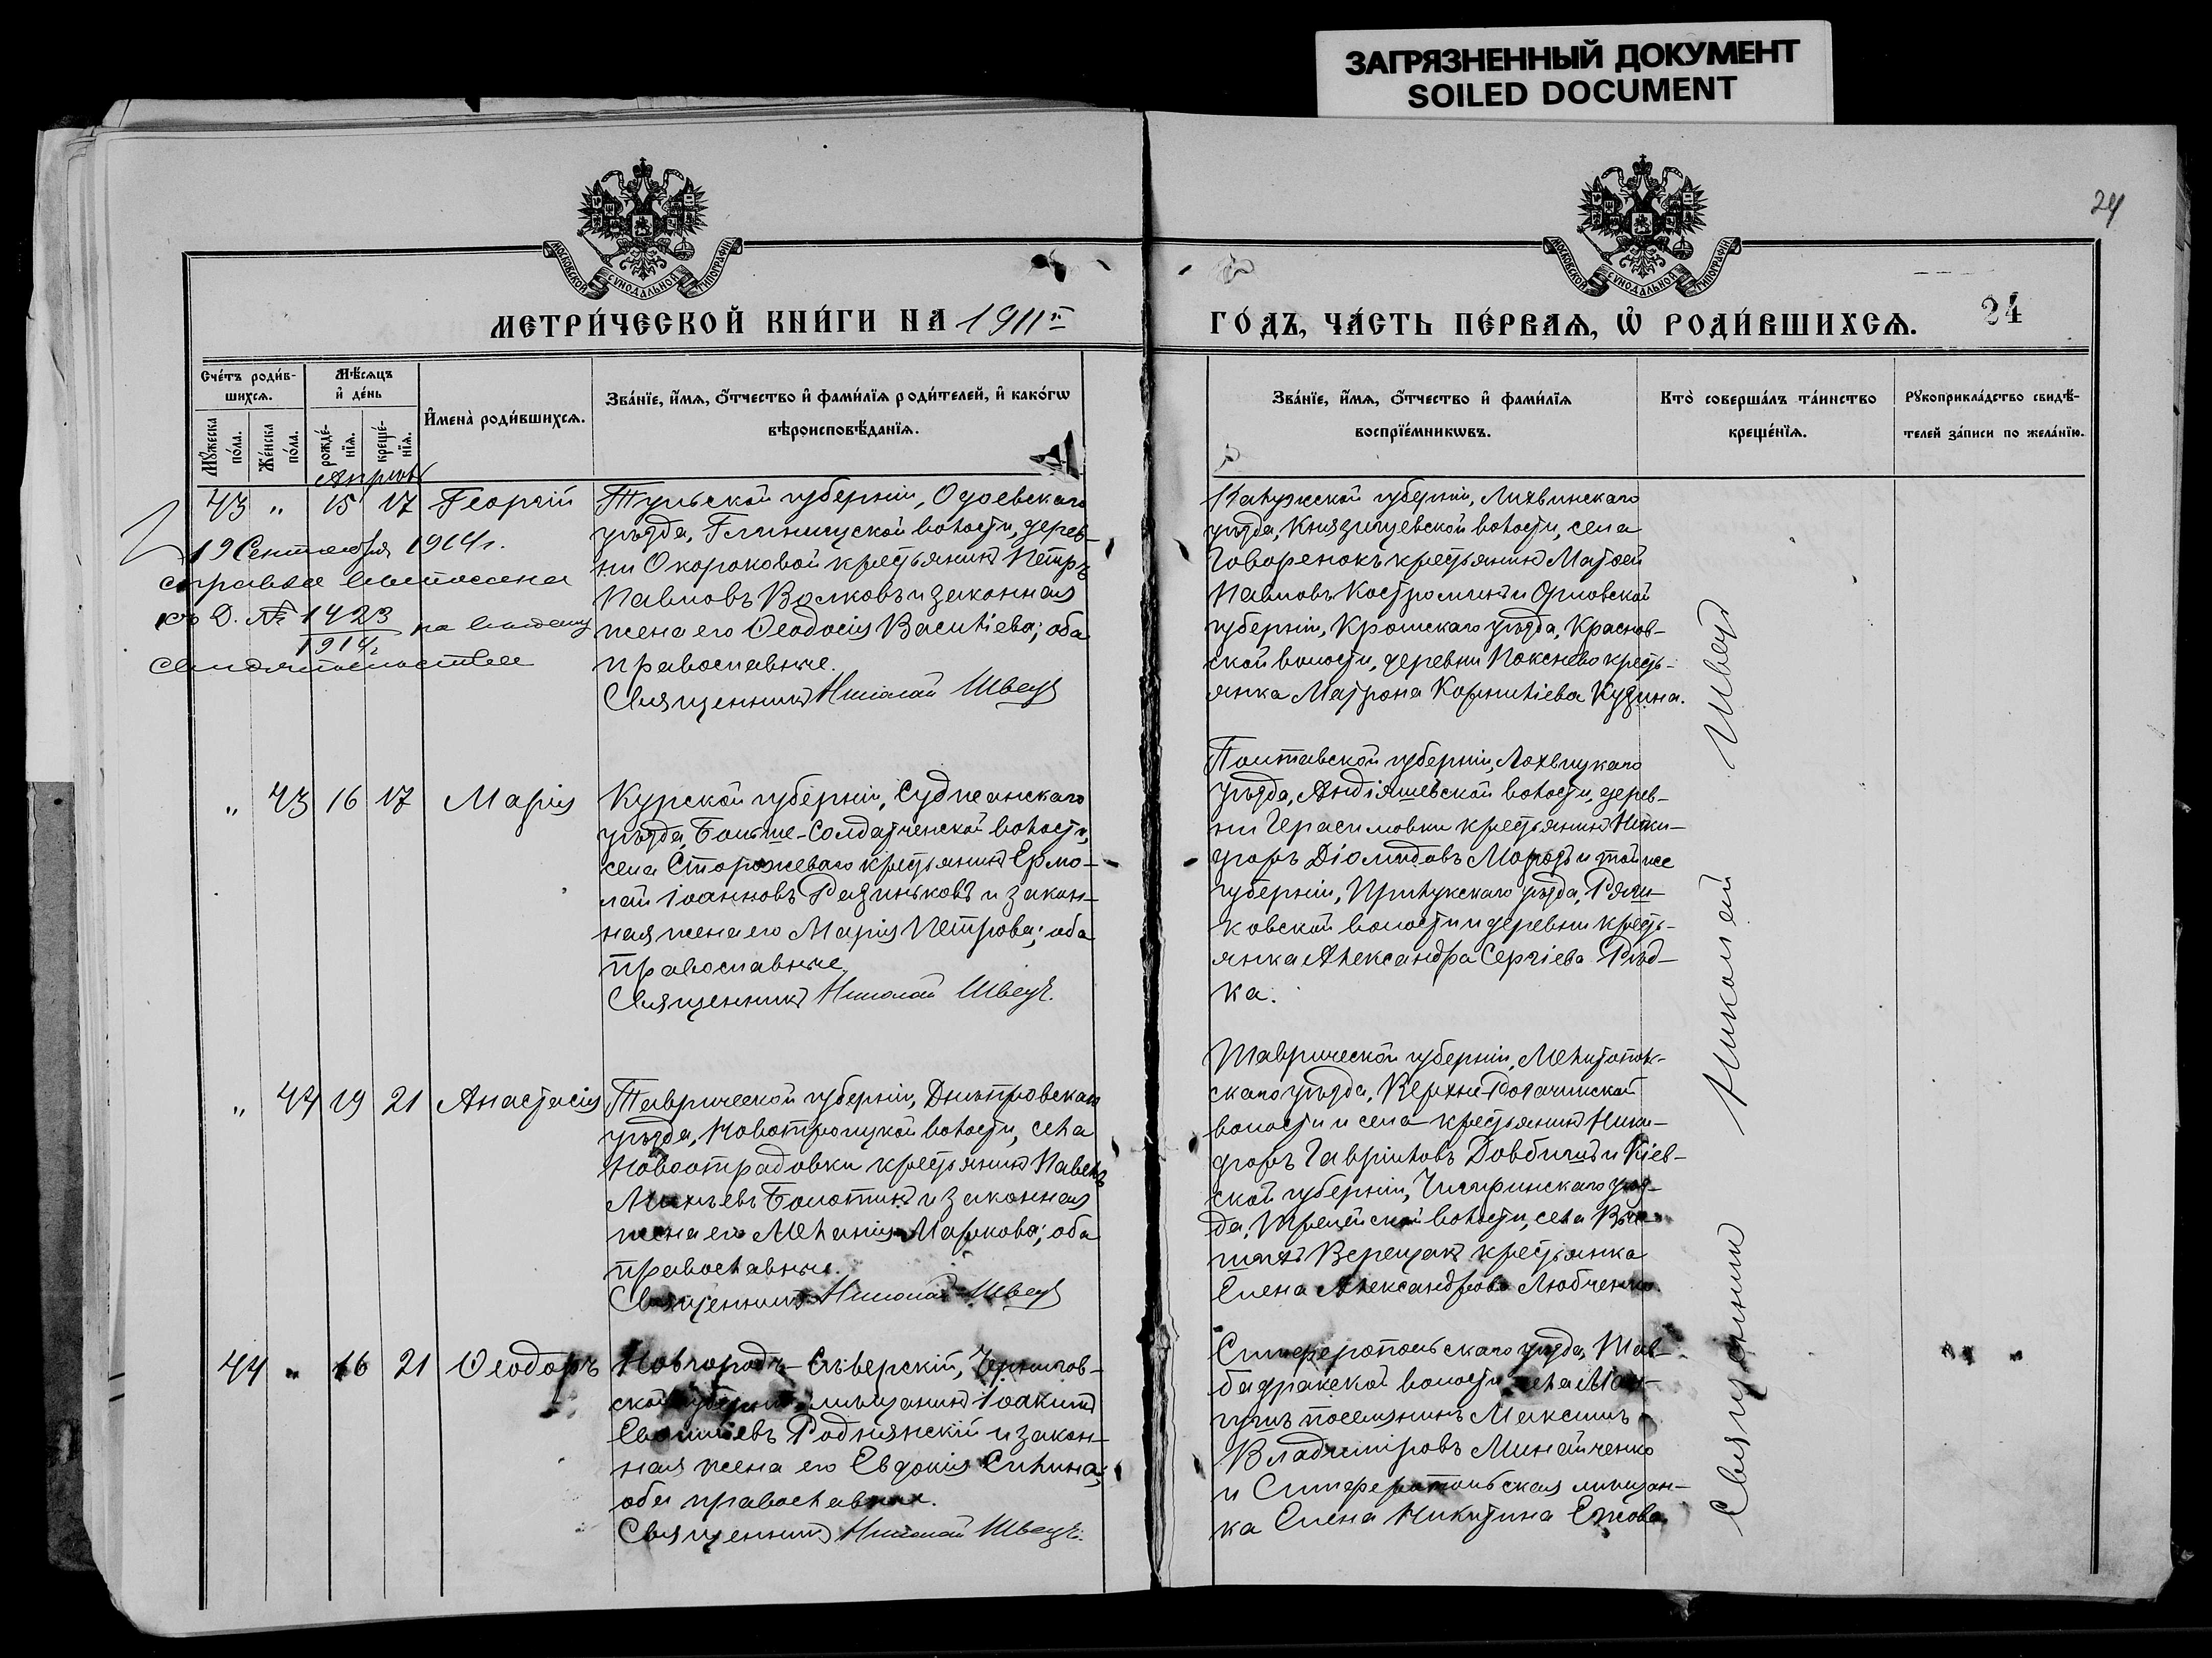 ЗАГРЯЗНЕННЫЙ ДОКУМЕНТ
SOILED DOCUMENT
24
МОСКОВСКОЙ СѴНОДАЛЬНОЙ ТИПОГРАФІИ
МОСКОВСКОЙ СѴНОДАЛЬНОЙ ТИПОГРАФІИ
МЕТРИ́ЧЕСКОЙ КНИ́ГИ НА 1911й
ГО́ДЪ, ЧА́СТЬ ПЕ́РВАѦ, Ѡ҆ РОДИ́ВШИХСѦ.
24
Сче́тъ роди́в-
шихсѧ.
Мѣ́сѧцъ
и҆ де́нь
Мꙋ́жеска по́ла.
Же́нска по́ла.
рожде́-нїѧ.
креще́-нїѧ.
И҆мена̀ роди́вшихсѧ.
Зва́нїе, и҆́мѧ, ѻ҆́тчество и҆ фами́лїѧ роди́телей, и҆ како́гѡ
вѣроисповѣ́данїѧ.
Зва́нїе, и҆́мѧ, ѻ҆́тчество и҆ фами́лїѧ
воспрїе́мникѡвъ.
Кто̀ соверша́лъ та́инство
креще́нїѧ.
Рꙋкоприкла́дство свидѣ́-
телей за́писи по жела́нїю.
Апрѣль
43 " 15 17 Георгій
19 Сентября 1914 г.
справка
къ Д. № 1423
1914 г.
на
Тульской губерніи, Одоевскаго
уѣзда, волости, дерев-
ни Окороковой крестьянинъ Петръ
Павловъ Волковъ и законная
жена его Ѳеодосія Васильева; оба
православные.
Священникъ Николай Швецъ
Калужской губерніи, Лихвинскаго
уѣзда, Князищевской волости, села
Говоренокъ крестьянинъ Матѳей
Павловъ Костроминъ и Орловской
губерніи, Кромскаго уѣзда, Краснов-
ской волости, деревни кресть-
янка Матрона Корнильева Кузина.
" 43 16 17 Марія
Курской губерніи, Суджанскаго
уѣзда, Больше-Солдатченской волости,
села Сторожеваго крестьянинъ Ермо-
лай Іоанновъ Разиньковъ и закон-
ная жена его Марія Петрова; оба
православные.
Священникъ Николай Швецъ.
Полтавской губерніи, Лохвицкаго
уѣзда, Андіяшевской волости, дерев-
ни Герасимовки крестьянинъ Ники-
форъ Діомидовъ Морозъ и той же
губерніи, Прилукскаго уѣзда, Ряш-
ковской волости и деревни кресть-
янка Александра Сергіева Рѣд-
ка.
" 44 19 21 Анастасія
Таврической губерніи, Днѣпровскаго
уѣзда, Новотроицкой волости, села
Новоотрадовки крестьянинъ Павелъ
Болотинъ и законная
жена его Меланія Маркова; оба
православные.
Священникъ Николай Швецъ
Таврической губерніи, Мелитополь-
скаго уѣзда, Верхне-Рогачинской
волости и села крестьянинъ Ники-
форъ Гавріиловъ Довбишъ и Кіев-
ской губерніи, Чигиринскаго уѣз-
да, волости, села
крестьянка
Елена Александрова Любченко.
44 " 16 21 Ѳеодоръ
Новгородъ-Сѣверскій, Чернигов-
ской губерніи мѣщанинъ Іоакимъ
Роднянскій и закон-
ная жена его Евдокія Силина;
оба православные.
Священникъ Николай Швецъ.
Симферопольскаго уѣзда, Тав-
бадракской волости, села Ман-
гушъ поселянинъ Максимъ
Владиміровъ Минайченко
и Симферопольская мѣщан-
ка Елена Никитина Ежова.
Священникъ Николай Швецъ